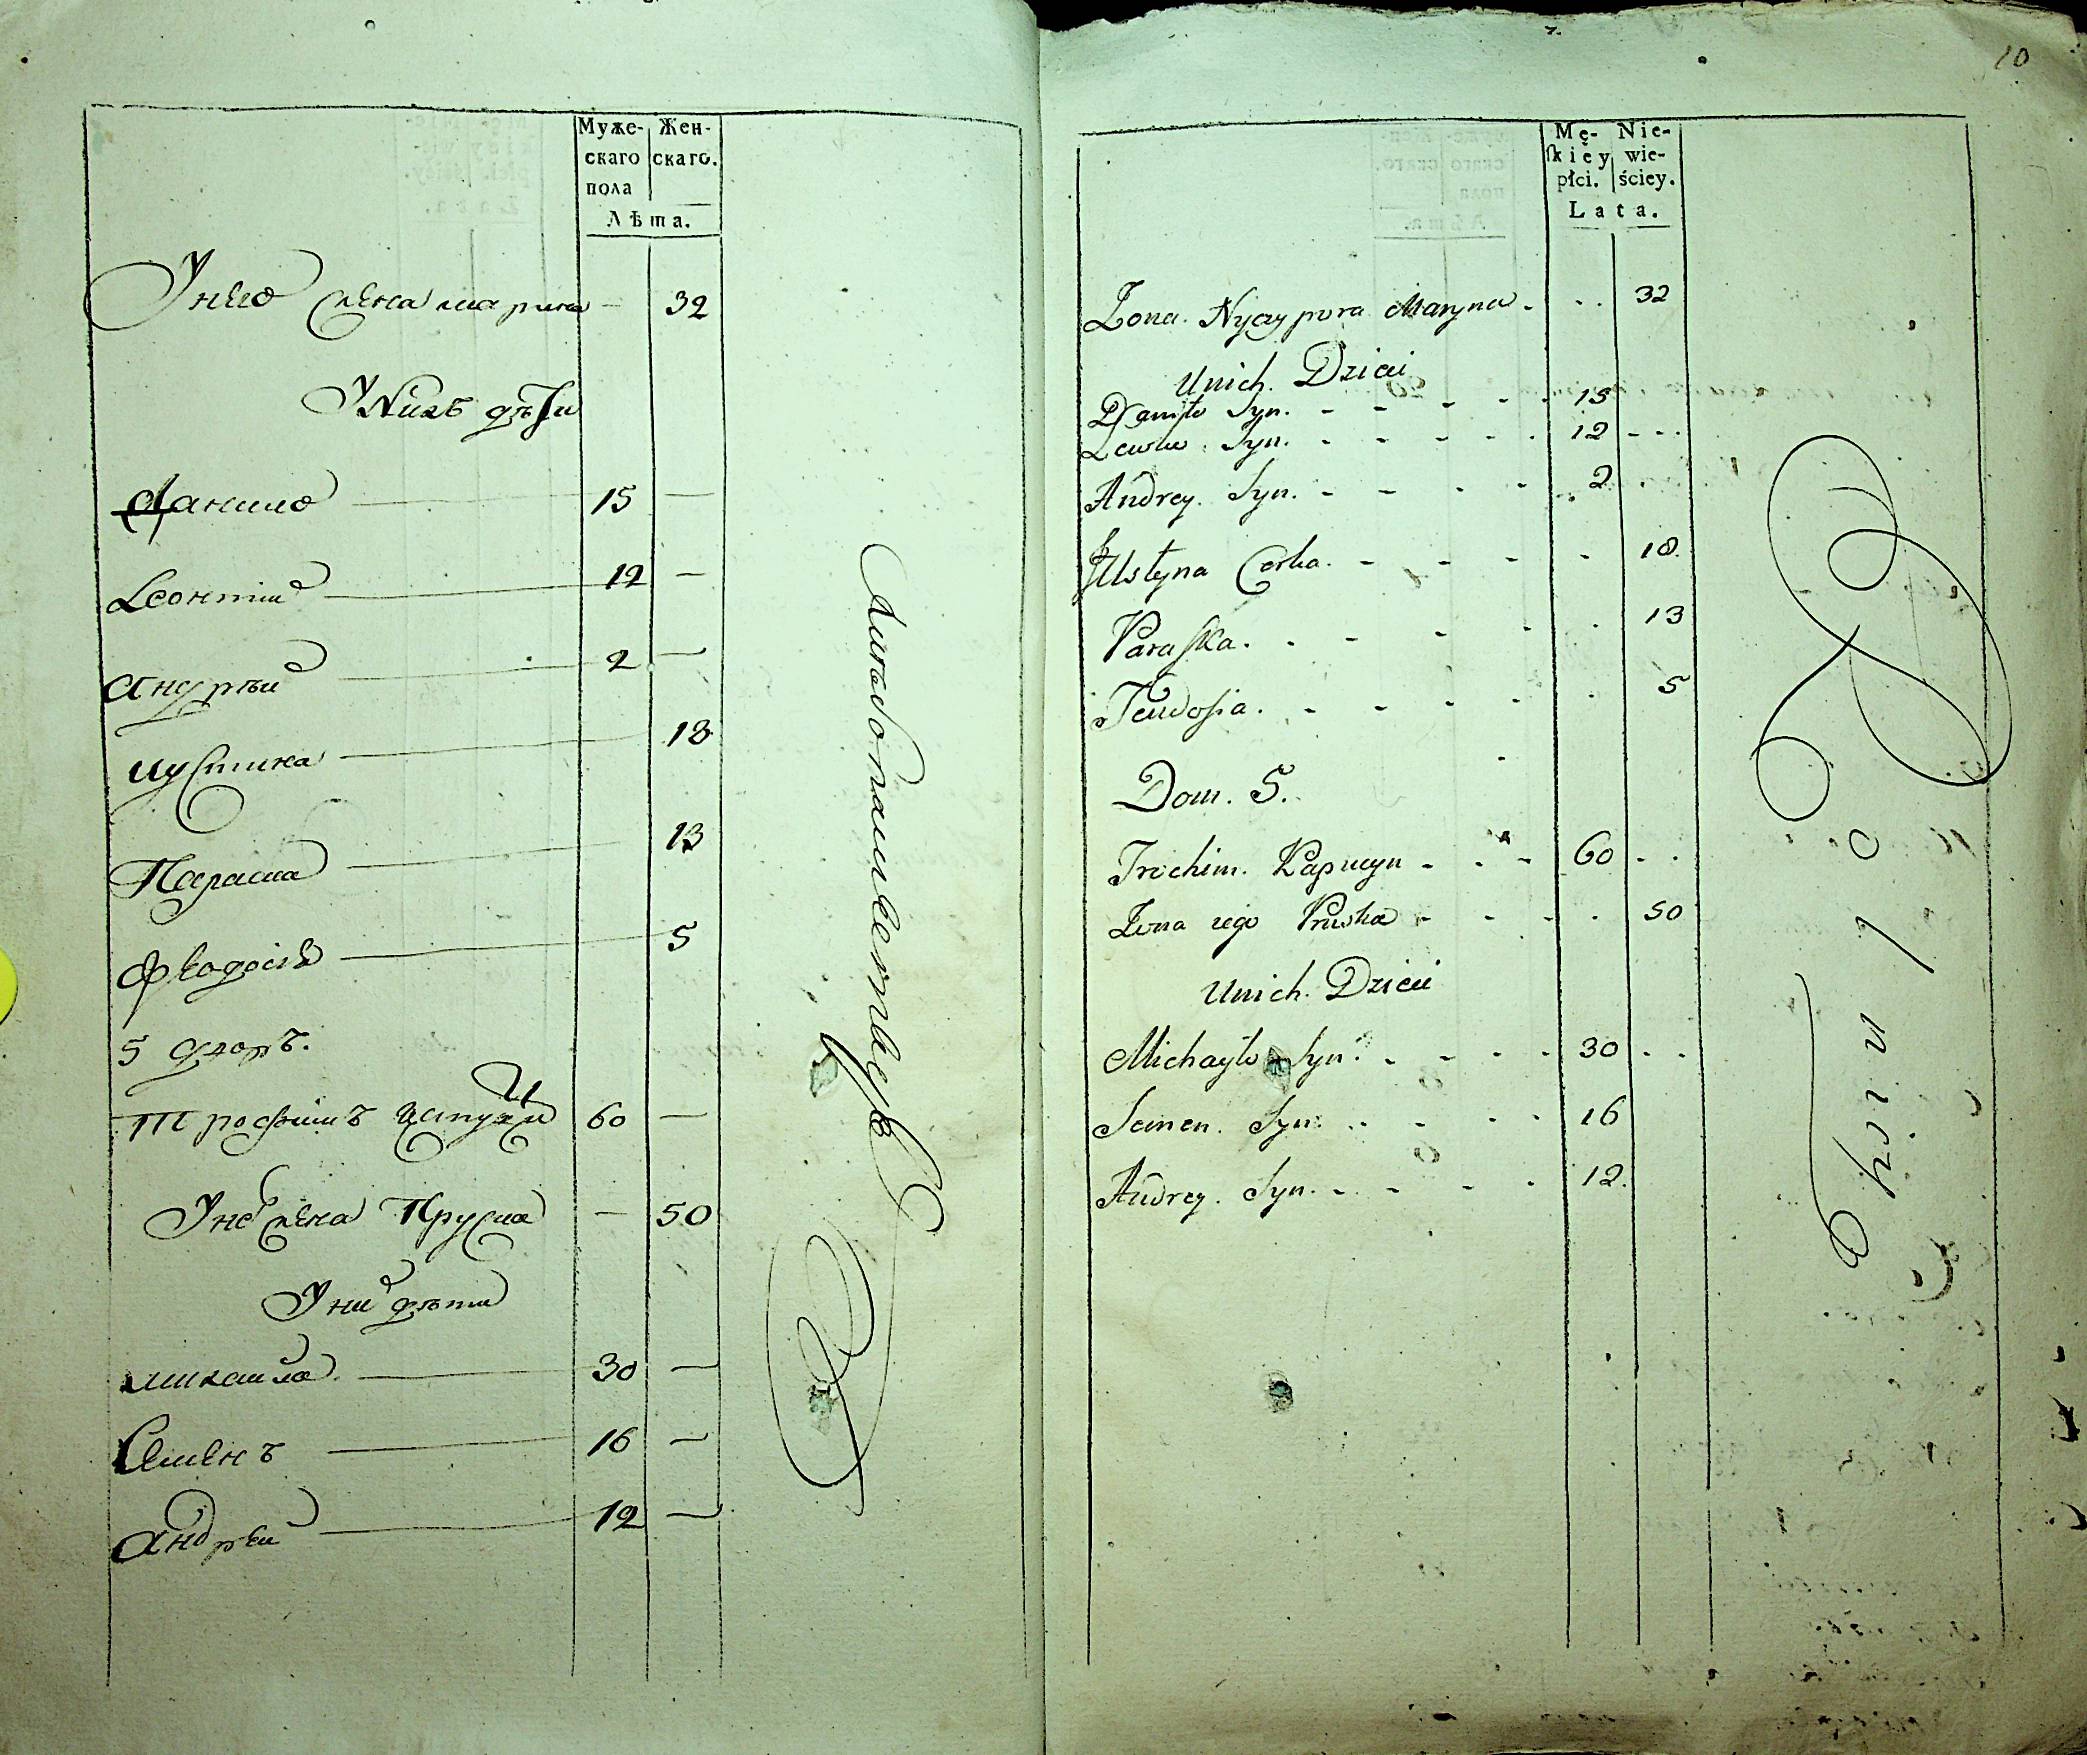 Муже- Жен-
скаго скаго.
пола
Лѣта.
У него жена марина — 32
У нихъ дѣти
Данило — 15 —
Леонтий — 12 —
андрѣй — 2 —
иустина — 18
Параска — 13
Феодосія — 5
5 дворъ.
Трофимъ 60 —
У нево жена Пруска — 50
У них дѣти
михайла — 30 —
Семенъ — 16 —
андрей — 12 —
10
Mę- Nie-
skiéy wie-
płci. ściey.
Lata.
Zona Nyczypora Maryna - . . 32
Unich. Dzieci
Daniło Syn. - - - - - 15
Syn. - - - - - 12 - - -
Andrey. Syn. - - - - . 2 .
Justyna Corka. - - - - - 18.
Paraska. . - - - . 13
Teudosia. - - - - . 5
Dom. 5.
Trochim. - - - 60 - .
Zona iego Pruska - - - . 50
Unich. Dzieci
Michayło Syn. - - - - 30 . .
Semen. Syn. . . - - - 16
Andrey. Syn. - - - - - 12.